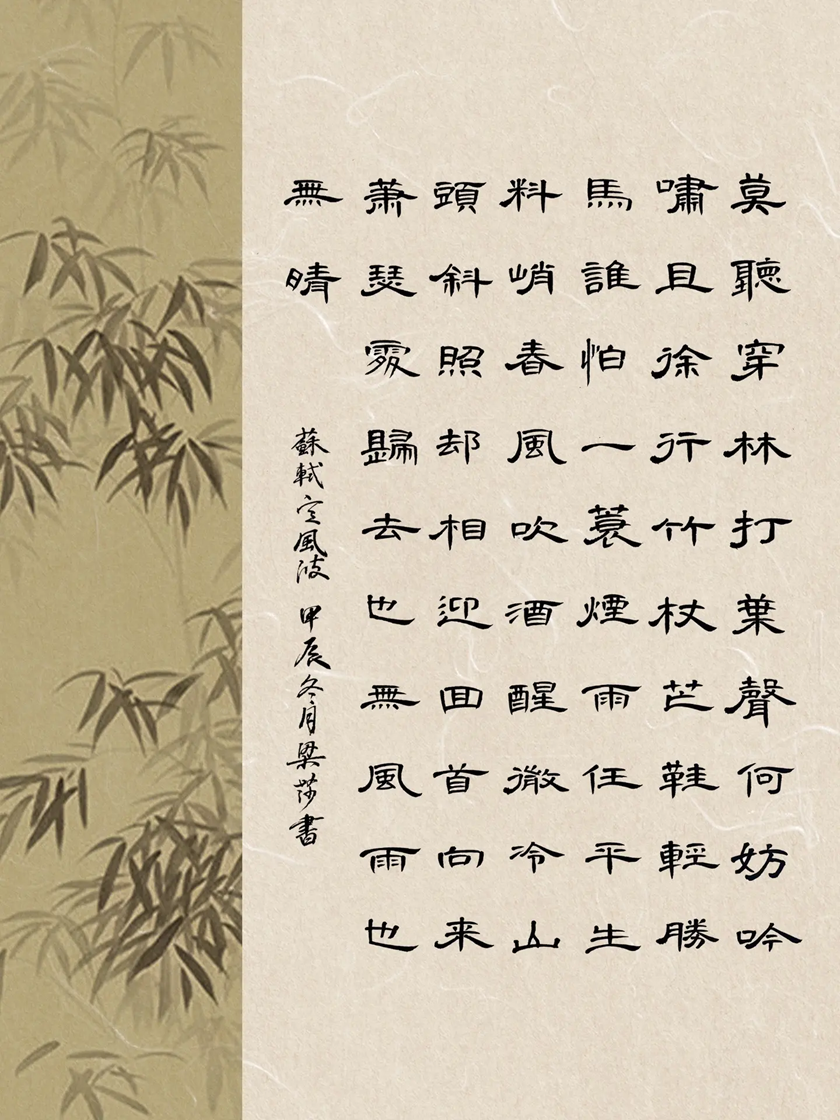 莫聽穿林打葉聲何妨吟
嘯且徐行竹杖芒鞋輕勝
馬誰怕一蓑煙雨任平生
料峭春風吹酒醒微冷山
頭斜照却相迎回首向来
蕭瑟處歸去也無風雨也
無晴
蘇軾定風波 甲辰冬月梁莎書